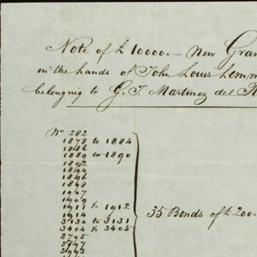 Note of £10000.- New Gran
in the hands of John Louis Lemm
belonging to G. F. Martinez del R
No 282
1878 to 1884
1886
1889 to 1890
1892
1894
1896
1898
1907
1909
1911 & 1912
1914
3130 to 3131
3404 & 3405
3795
35 Bonds of £200.